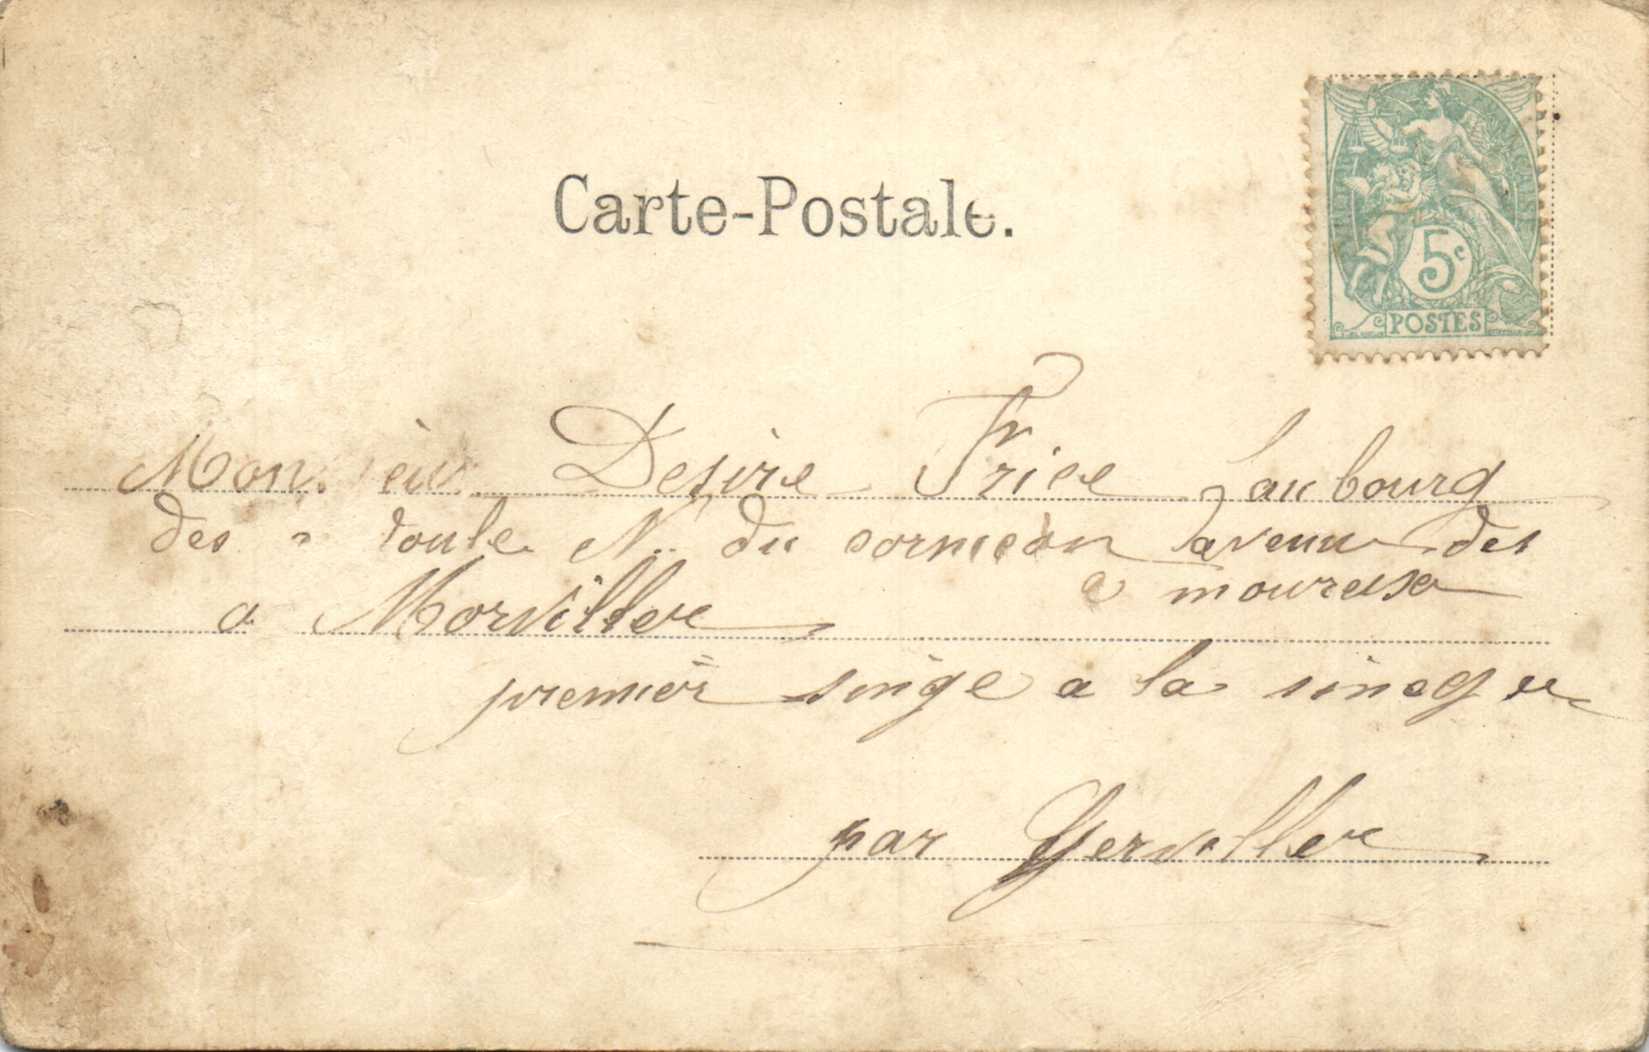 Carte-Postale.
5c
POSTES
Monsieur Desire Frice faubourg
des toule N. du cornicon avenu des
a Morviller a moureuse
premier singe a la sinagre
par Gerviller